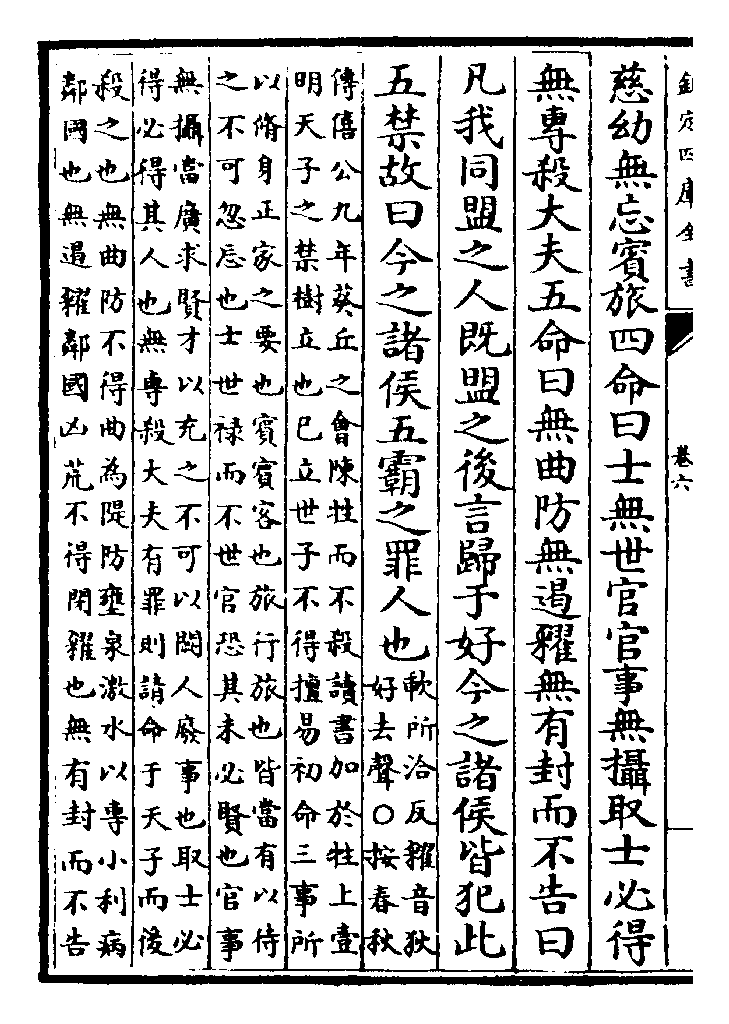 欽定四庫全書
卷六
慈幼無忘賓旅四命曰士無世官官事無攝取士必得
無專殺大夫五命曰無曲防無遏糴無有封而不告曰
凡我同盟之人既盟之後言歸于好今之諸侯皆犯此
五禁故曰今之諸侯五霸之罪人也
歃所洽反糴音狄
好去聲○按春秋
傳僖公九年葵丘之會陳牲而不殺讀書加於牲上壹
明天子之禁樹立也已立世子不得擅易初命三事所
以脩身正家之要也賓賓客也旅行旅也皆當有以待
之不可忽忘也士世禄而不世官恐其未必賢也官事
無攝當廣求賢才以充之不可以闕人廢事也取士必
得必得其人也無專殺大夫有罪則請命于天子而後
殺之也無曲防不得曲為隄防壅泉激水以專小利病
鄰國也無遏糴鄰國凶荒不得閉糴也無有封而不告